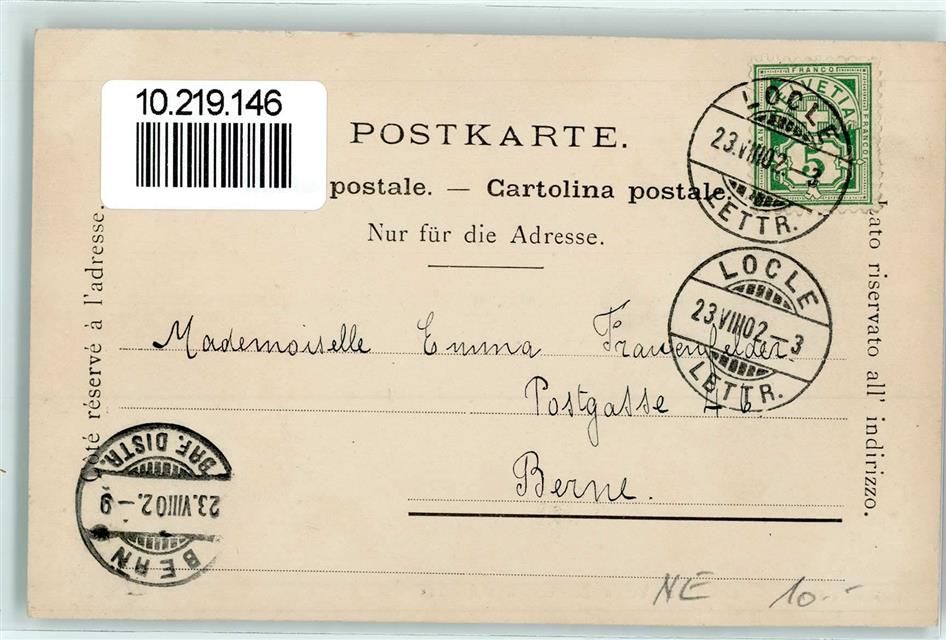 10.219.146
POSTKARTE.
postale. — Cartolina postale.
Nur für die Adresse.
Côté réservé à l'adresse.
Lato riservato all' indirizzo.
FRANCO
HELVETIA
FRANCO
5
LOCLE
23.VIII02.–3
LETTR.
LOCLE
23.VIII02.–3
LETTR.
Mademoiselle Emma Frauenfelder
Postgasse
Berne.
BRF. DISTR.
23.VIII02.–9
BERN
NE 10.-